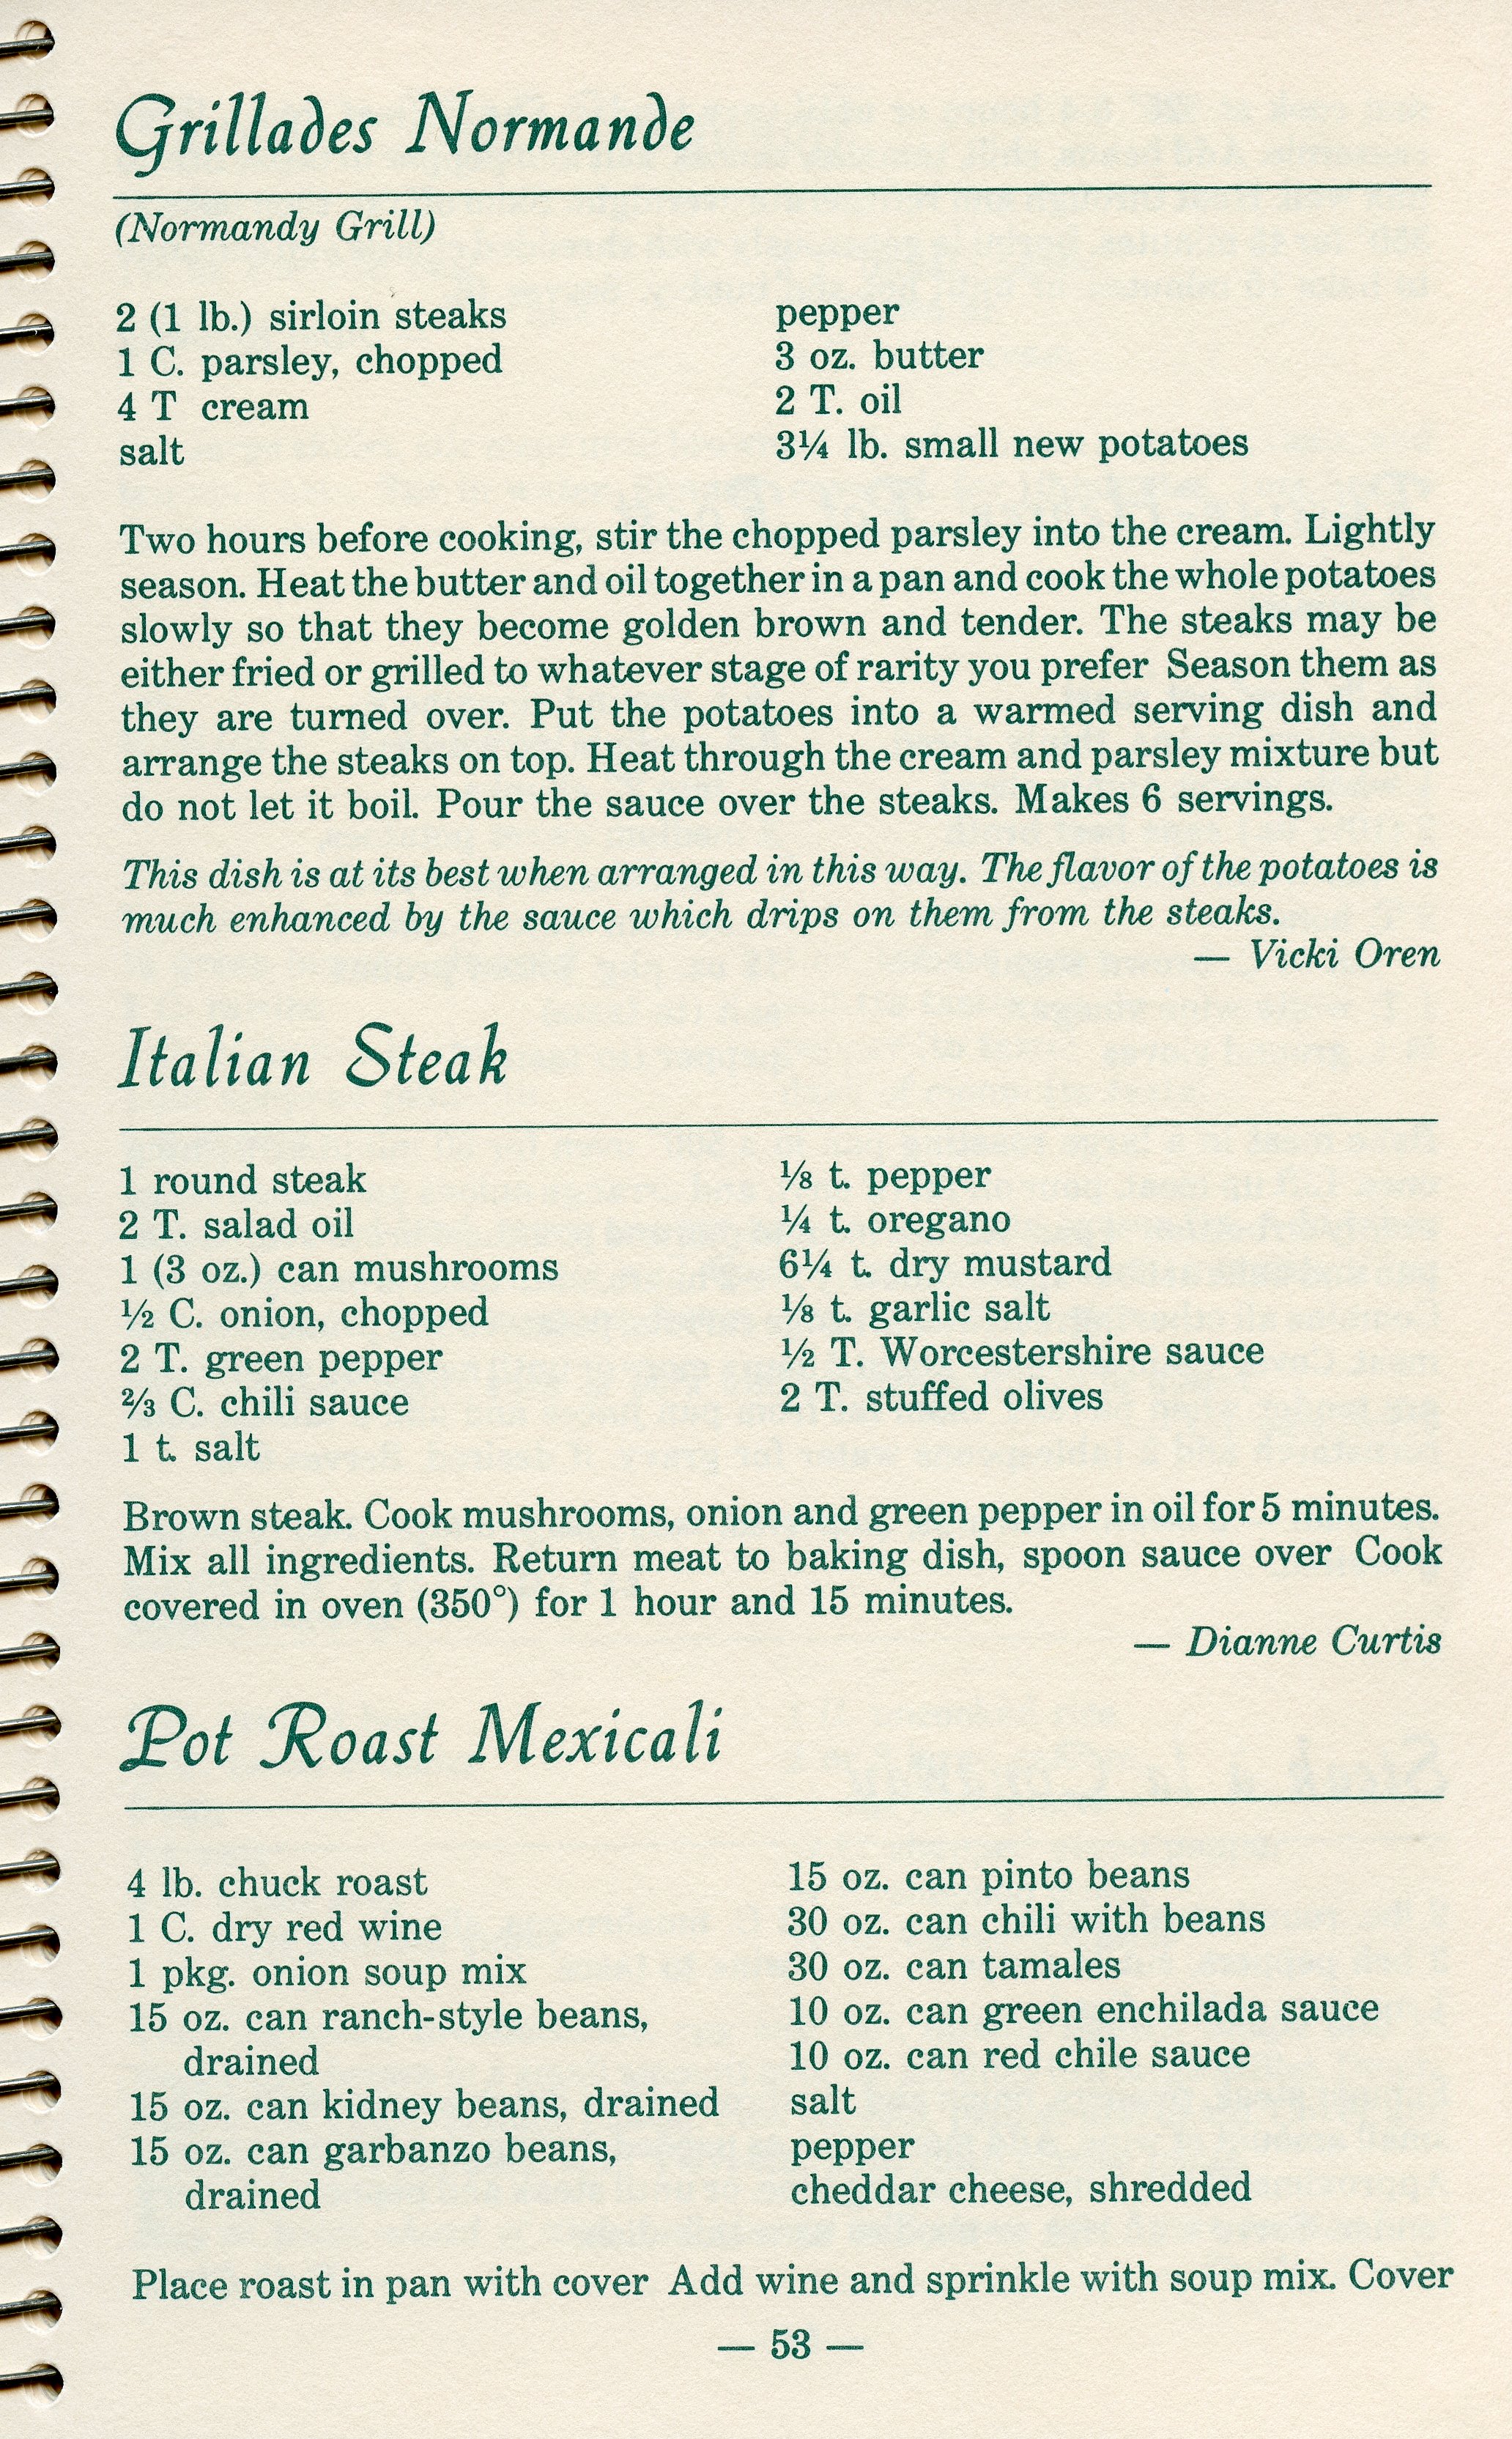 Grillades Normande
(Normandy Grill)
2 (1 lb.) sirloin steaks
1 C. parsley, chopped
4 T cream
salt
pepper
3 oz. butter
2 T. oil
3¼ lb. small new potatoes
Two hours before cooking, stir the chopped parsley into the cream. Lightly
season. Heat the butter and oil together in a pan and cook the whole potatoes
slowly so that they become golden brown and tender. The steaks may be
either fried or grilled to whatever stage of rarity you prefer Season them as
they are turned over. Put the potatoes into a warmed serving dish and
arrange the steaks on top. Heat through the cream and parsley mixture but
do not let it boil. Pour the sauce over the steaks. Makes 6 servings.
This dish is at its best when arranged in this way. The flavor of the potatoes is
much enhanced by the sauce which drips on them from the steaks.
— Vicki Oren
Italian Steak
1 round steak
2 T. salad oil
1 (3 oz.) can mushrooms
½ C. onion, chopped
2 T. green pepper
⅔ C. chili sauce
1 t. salt
⅛ t. pepper
¼ t. oregano
6¼ t. dry mustard
⅛ t. garlic salt
½ T. Worcestershire sauce
2 T. stuffed olives
Brown steak. Cook mushrooms, onion and green pepper in oil for 5 minutes.
Mix all ingredients. Return meat to baking dish, spoon sauce over Cook
covered in oven (350°) for 1 hour and 15 minutes.
— Dianne Curtis
Pot Roast Mexicali
4 lb. chuck roast
1 C. dry red wine
1 pkg. onion soup mix
15 oz. can ranch-style beans,
drained
15 oz. can kidney beans, drained
15 oz. can garbanzo beans,
drained
15 oz. can pinto beans
30 oz. can chili with beans
30 oz. can tamales
10 oz. can green enchilada sauce
10 oz. can red chile sauce
salt
pepper
cheddar cheese, shredded
Place roast in pan with cover Add wine and sprinkle with soup mix. Cover
— 53 —